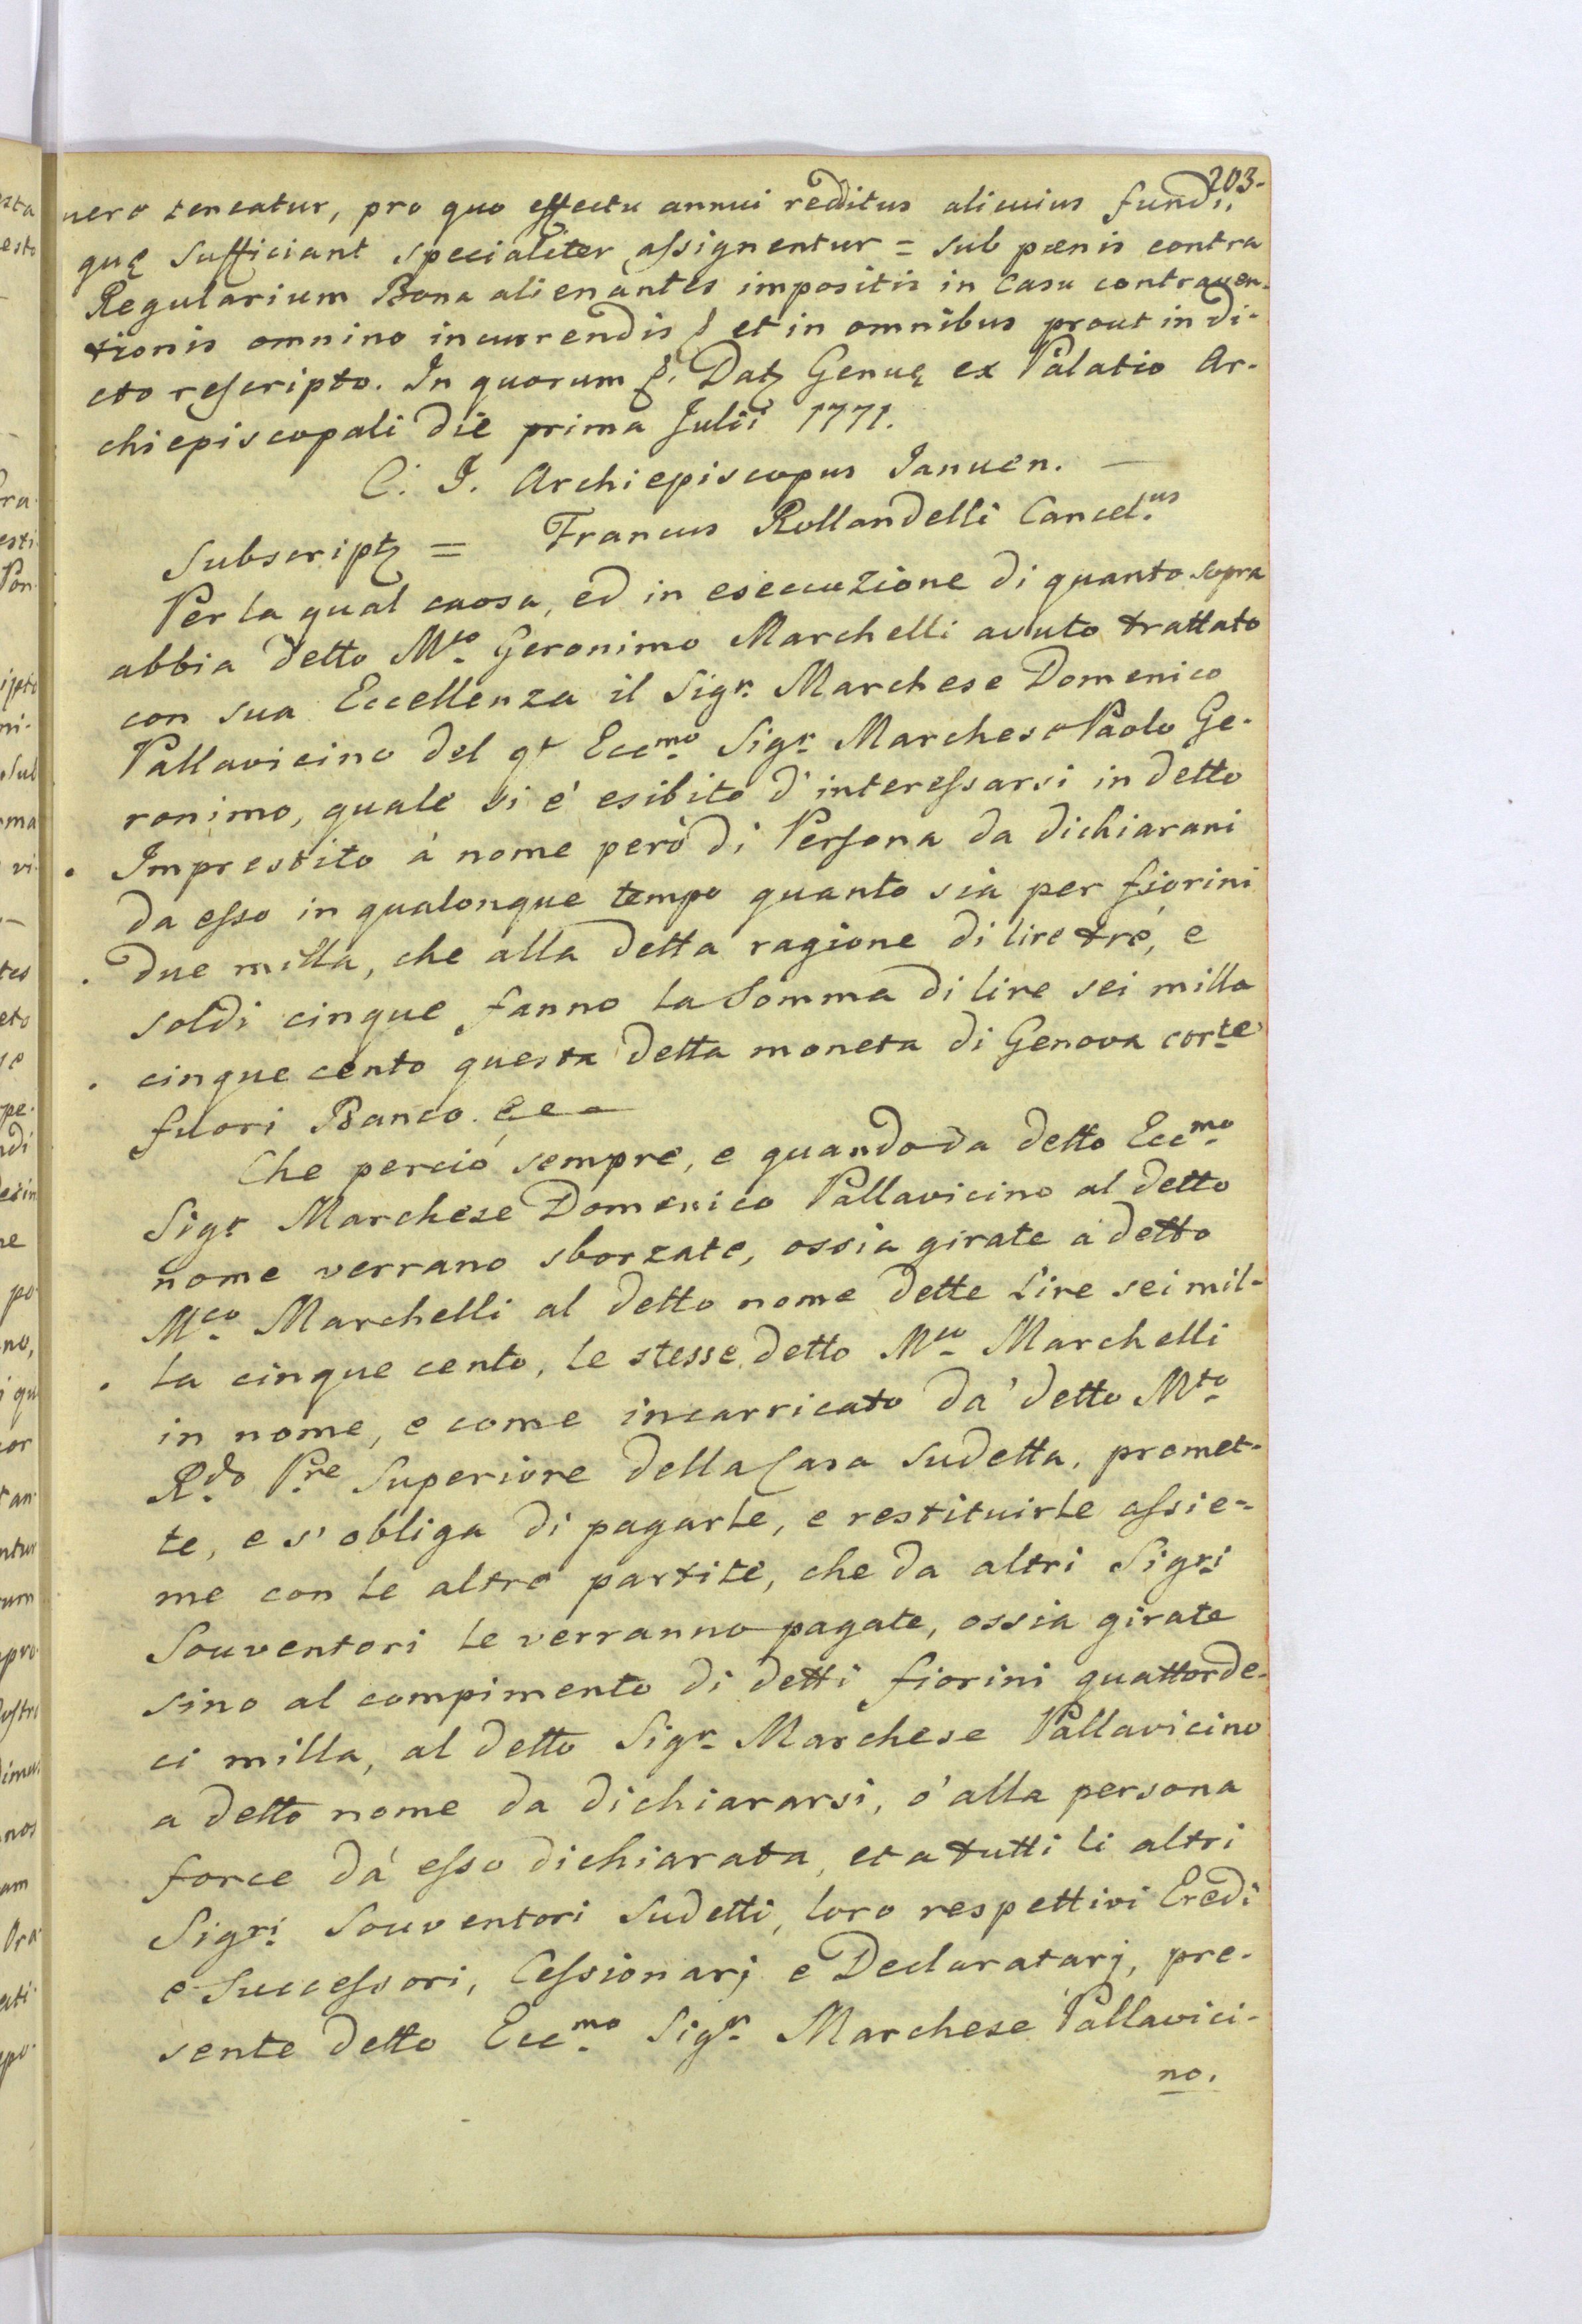 203.
nero teneatur, pro quo effectu annui redditus alicuius fundi,
quę sufficiant specialiter assignentur = sub pœnis contra
Regularium Bona alienantes impositis in Casu contraven-
tionis omnino incurrendis & et in omnibus prout in di-
cto rescripto. In quorum &. Datz Genuę ex Palatio Ar-
chiepiscopali die prima Julii 1771.
C. I. Archiepiscopus Januen. —
Subscriptz = Francus Rollandelli Cancel.us
Per la qual caosa, ed in eseccuzione di quanto sopra
abbia detto M.co Geronimo Marchelli avuto trattato
con sua Eccellenza il Sigr. Marchese Domenico
Pallavicino del qt Ecc.mo Sigr. Marchese Paolo Ge-
ronimo, quale si é esibito d'interessarsi in detto
Imprestito á nome però di Persona da dichiarari
da esso in qualonque tempo quanto sia per fiorini
due milla, che alla detta ragione di lire tré, e
soldi cinque fanno la Somma di lire sei milla
cinque cento questa detta moneta di Genova cor.te
fuori Banco. &e —
Che perció sempre, e quando da detto Ecc.mo
Sigr. Marchese Domenico Pallavicino al detto
nome verrano sborzate, ossia girate á detto
M.co Marchelli al detto nome dette Lire sei mil-
la cinque cento, le stesse detto M.co Marchelli
in nome, e come incarricato da' detto M.to
R.do P.re Superiore della Casa Sudetta, promet-
te, e s'obliga di pagarle, e restituirle assie-
me con le altre partite, che da altri Sigr.i
Souventori le verranno pagate, ossia girate
sino al compimento di detti fiorini quattorde-
ci milla, al detto Sigr. Marchese Pallavicino
a detto nome da dichiararsi, o' alla persona
force dá esso dichiarata, et a tutti li altri
Sigr.i Souventori Sudetti, loro respettivi Eredi
e Successori, Cessionarj e Declaratarj, pre-
sente detto Ecc.mo Sigr. Marchese Pallavici-
no.